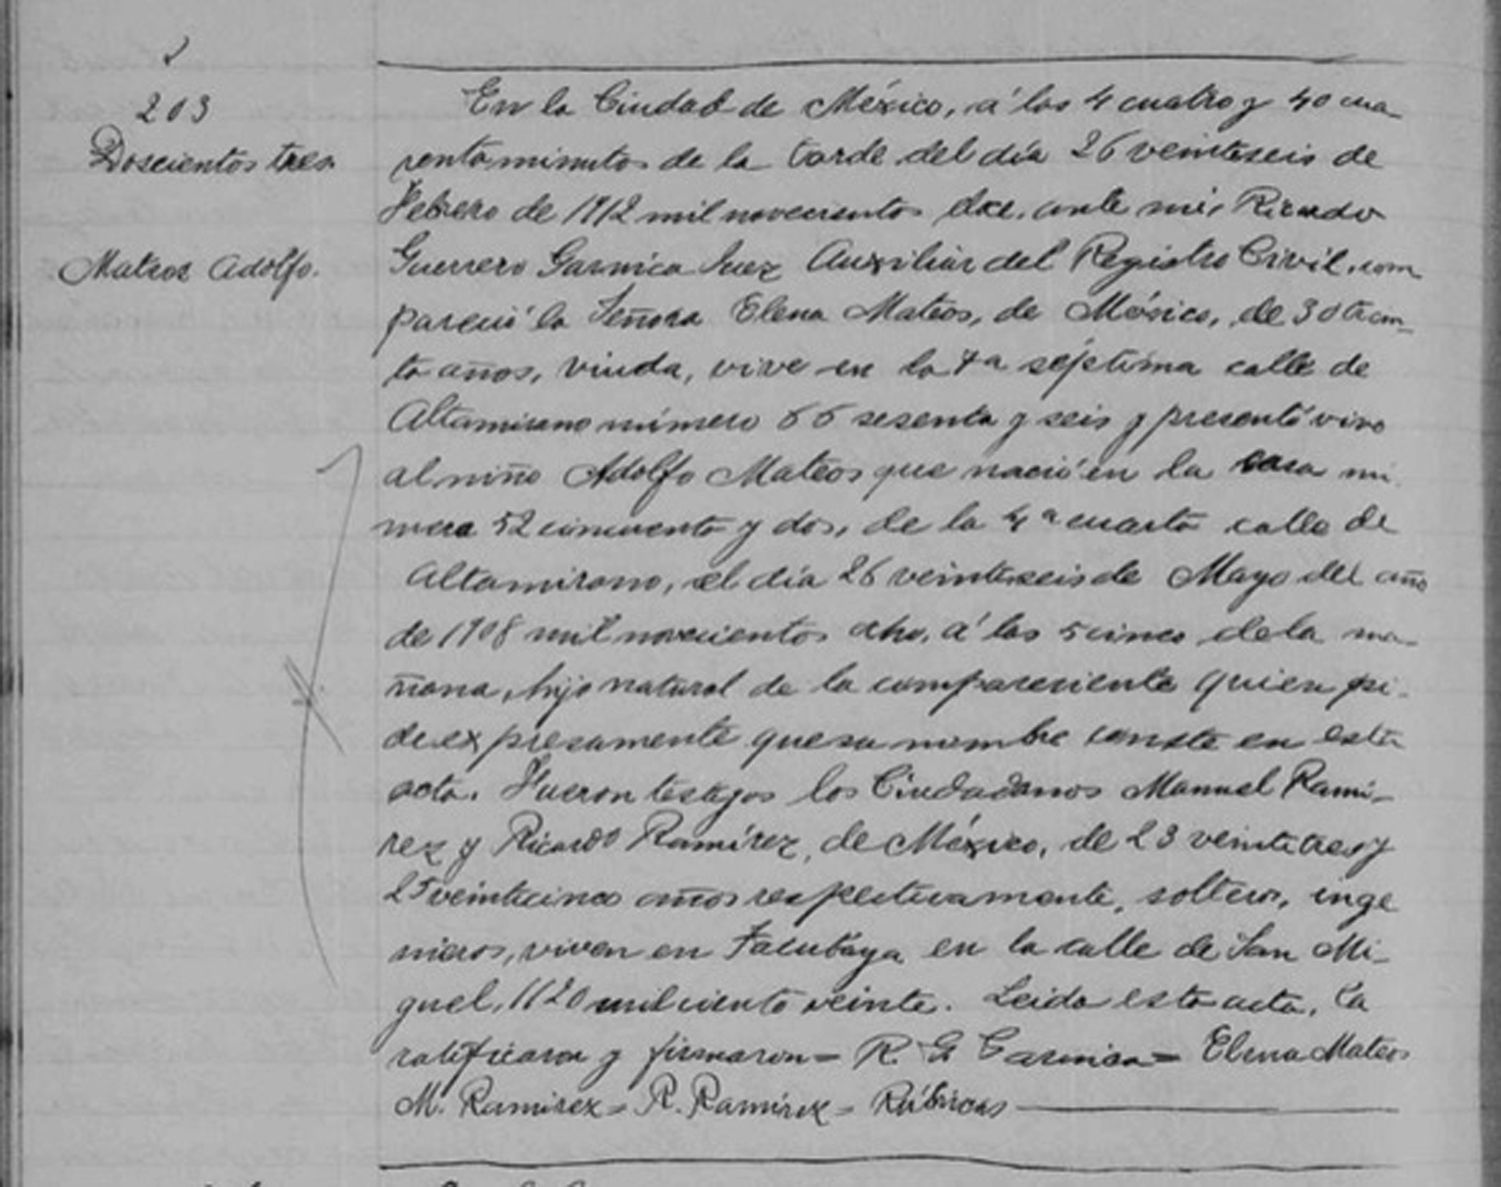 203
Doscientos tres.
Mateos Adolfo.
En la Ciudad de México, á las 4 cuatro y 40 cua
renta minutos de la tarde del día 26 veinteseis de
Febrero de 1912 mil novecientos doce, ante mí, Ricardo
Guerrero Garnica Juez Auxiliar del Registro Civil, com
pareció la Señora Elena Mateos, de México, de 30 trein_
ta años, viuda, vive en la 7a séptima calle de
Altamirano número 66 sesenta y seis y presentó vivo
al niño Adolfo Mateos que nació en la casa nú
mero 52 cincuenta y dos, de la 4a cuarta calle de
Altamirano, el día 26 veinteseis de Mayo del año
de 1908 mil novecientos ocho, á las 5 cinco de la ma_
ñana, hijo natural de la compareciente quien pi_
de expresamente que su nombre conste en esta
acta. Fueron testigos los Ciudadanos Manuel Ramí_
rez y Ricardo Ramírez, de México, de 23 veintitres y
25 veinticinco años respectivamente, solteros, inge
nieros, viven en Tacubaya en la calle de San Mi_
guel, 1120 mil ciento veinte. Leida esta acta, la
ratificaron y firmaron = R. G. Garnica = Elena Mateos
M. Ramirez = R. Ramírez = Rúbricas